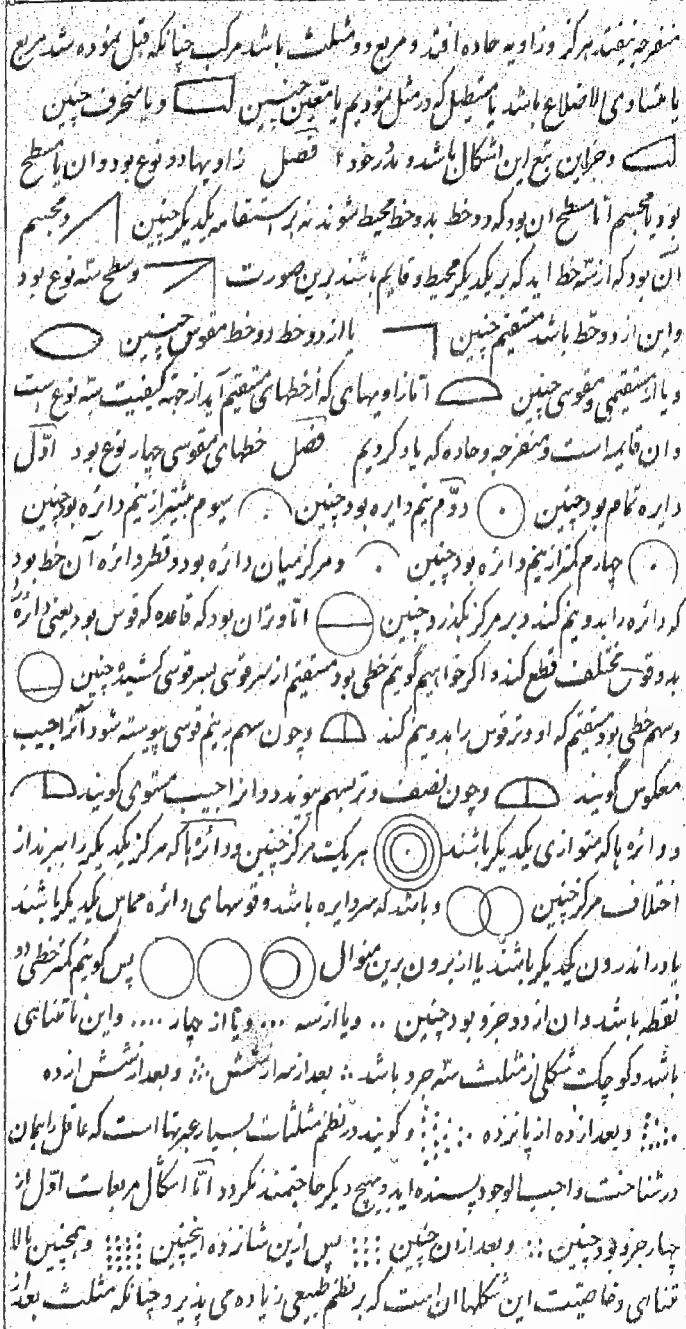 منفرجه نیفتد هرگز و زاویه حاده افتد و مربع دو مثلث باشد مرکب چنانکه قبل نموده شد مربع
یا متساوی الاضلاع باشد یا مستطیل که در مثل نمودیم یا معین چنین و یا منحرف چنین
و جز این تبع این اشکال باشد و بدر خود فصل زاویها دو نوع بود و ان یا مسطح
بود یا مجسم اما مسطح ان بود که دو خط بدو خط محیط شوند نه بر استقامه یکدیگر چنین و مجسم
ان بود که از سه خط اید که بر یکدیگر محیط و قایم باشند برین صورت و سطح سه نوع بود
و این از دو خط باشد مستقیم چنین یا از دو خط دو خط مقوس چنین
و یا از مستقیمی و مقوسی چنین اما زاویهای که از خطهای مستقیم آید از جهة کیفیت سه نوع است
و ان قایمه است و منفرجه و حاده که یاد کردیم فصل خطهای مقوسی چهار نوع بود اول
دایره تمام بود چنین دوم نیم دایره بود چنین سیوم بیشتر از نیم دائره بود چنین
چهارم کمتر از نیم دائره بود چنین و مرکز میان دائره بود و قطر دائره آن خط بود
که دائره را بدو نیم کند و بر مرکز بگذرد چنین اما وتر ان بود که قاعده که قوس بود یعنی دائره را
بدو قوس مختلف قطع کند و اگر خواهیم گوییم خطی بود مستقیم از سر قوسی بسر قوسی کشیده چنین
و سهم خطی بود مستقیم که او وتر قوس را بدو نیم کند و چون سهم بنیم قوسی پیوسته شود آنرا جیب
معکوس گویند و چون نصف وتر بسهم پیوندد و انرا جیب مستوی گویند
و دائره ها که متوازی یکدیگر باشند بر یک مرکز چنین و دائرها که مرکز یکدیگر را ببرند از
اختلاف مرکز چنین و باشد که سر دایره باشد و قوسهای دائره مماس یکدیگر باشند
یا در اندرون یکدیگر باشند یا از برون برین منوال پس گوییم کمتر خطی دو
نقطه باشد و ان از دو جزو بود چنین .. و یا از سه ... و یا از چهار .... و این نا متناهی
باشد و کوچک شکلی از مثلث سه جزو باشد بعد از سه از شش و بعد از شش از ده
و بعد از ده از پانزده و گویند در نظم مثلثات بسیار عبرتها است که عاقل را بجان
در شناخت واجب الوجود پسنده اید و بهیچ دیگر حاجتمند نگردد اما اشکال مربعات اول از
چهار جزو بود چنین و بعد از ان چنین پس ازین شانزده اینچنین و همچنین بالا
متناهی و خاصیت این شکلها ان است که بر نظم طبیعی زیاده می پذیرد چنانکه مثلث بعد از